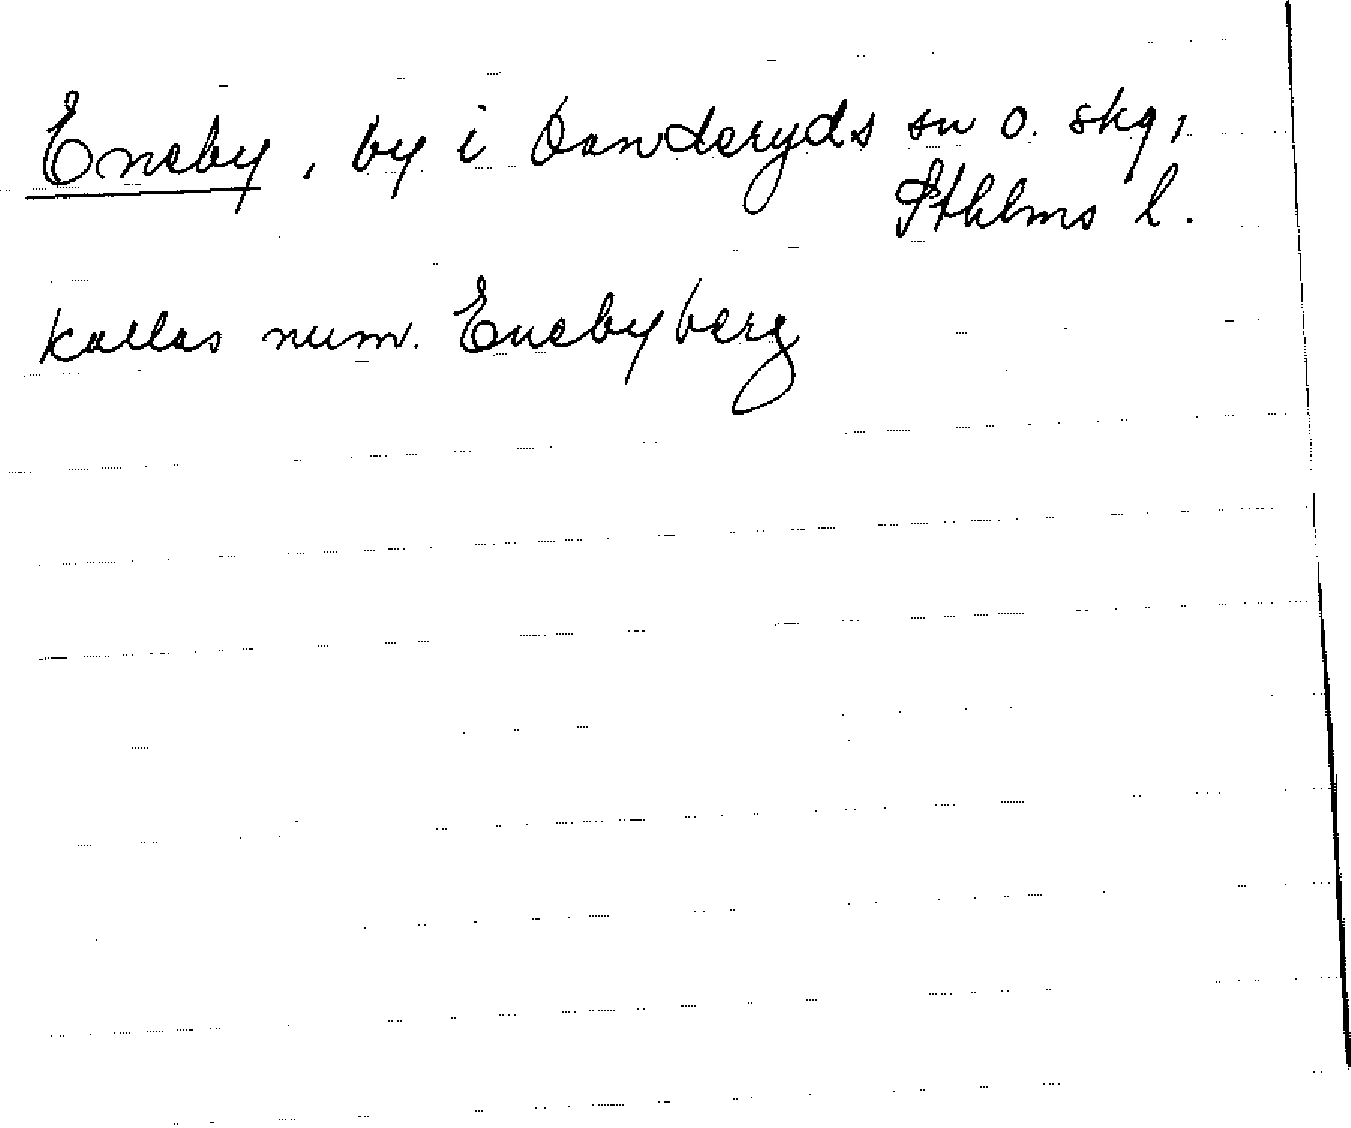 Eneby, by i Danderyds sn o. skg,
Sthlms l.
kallas num. Enebyberg